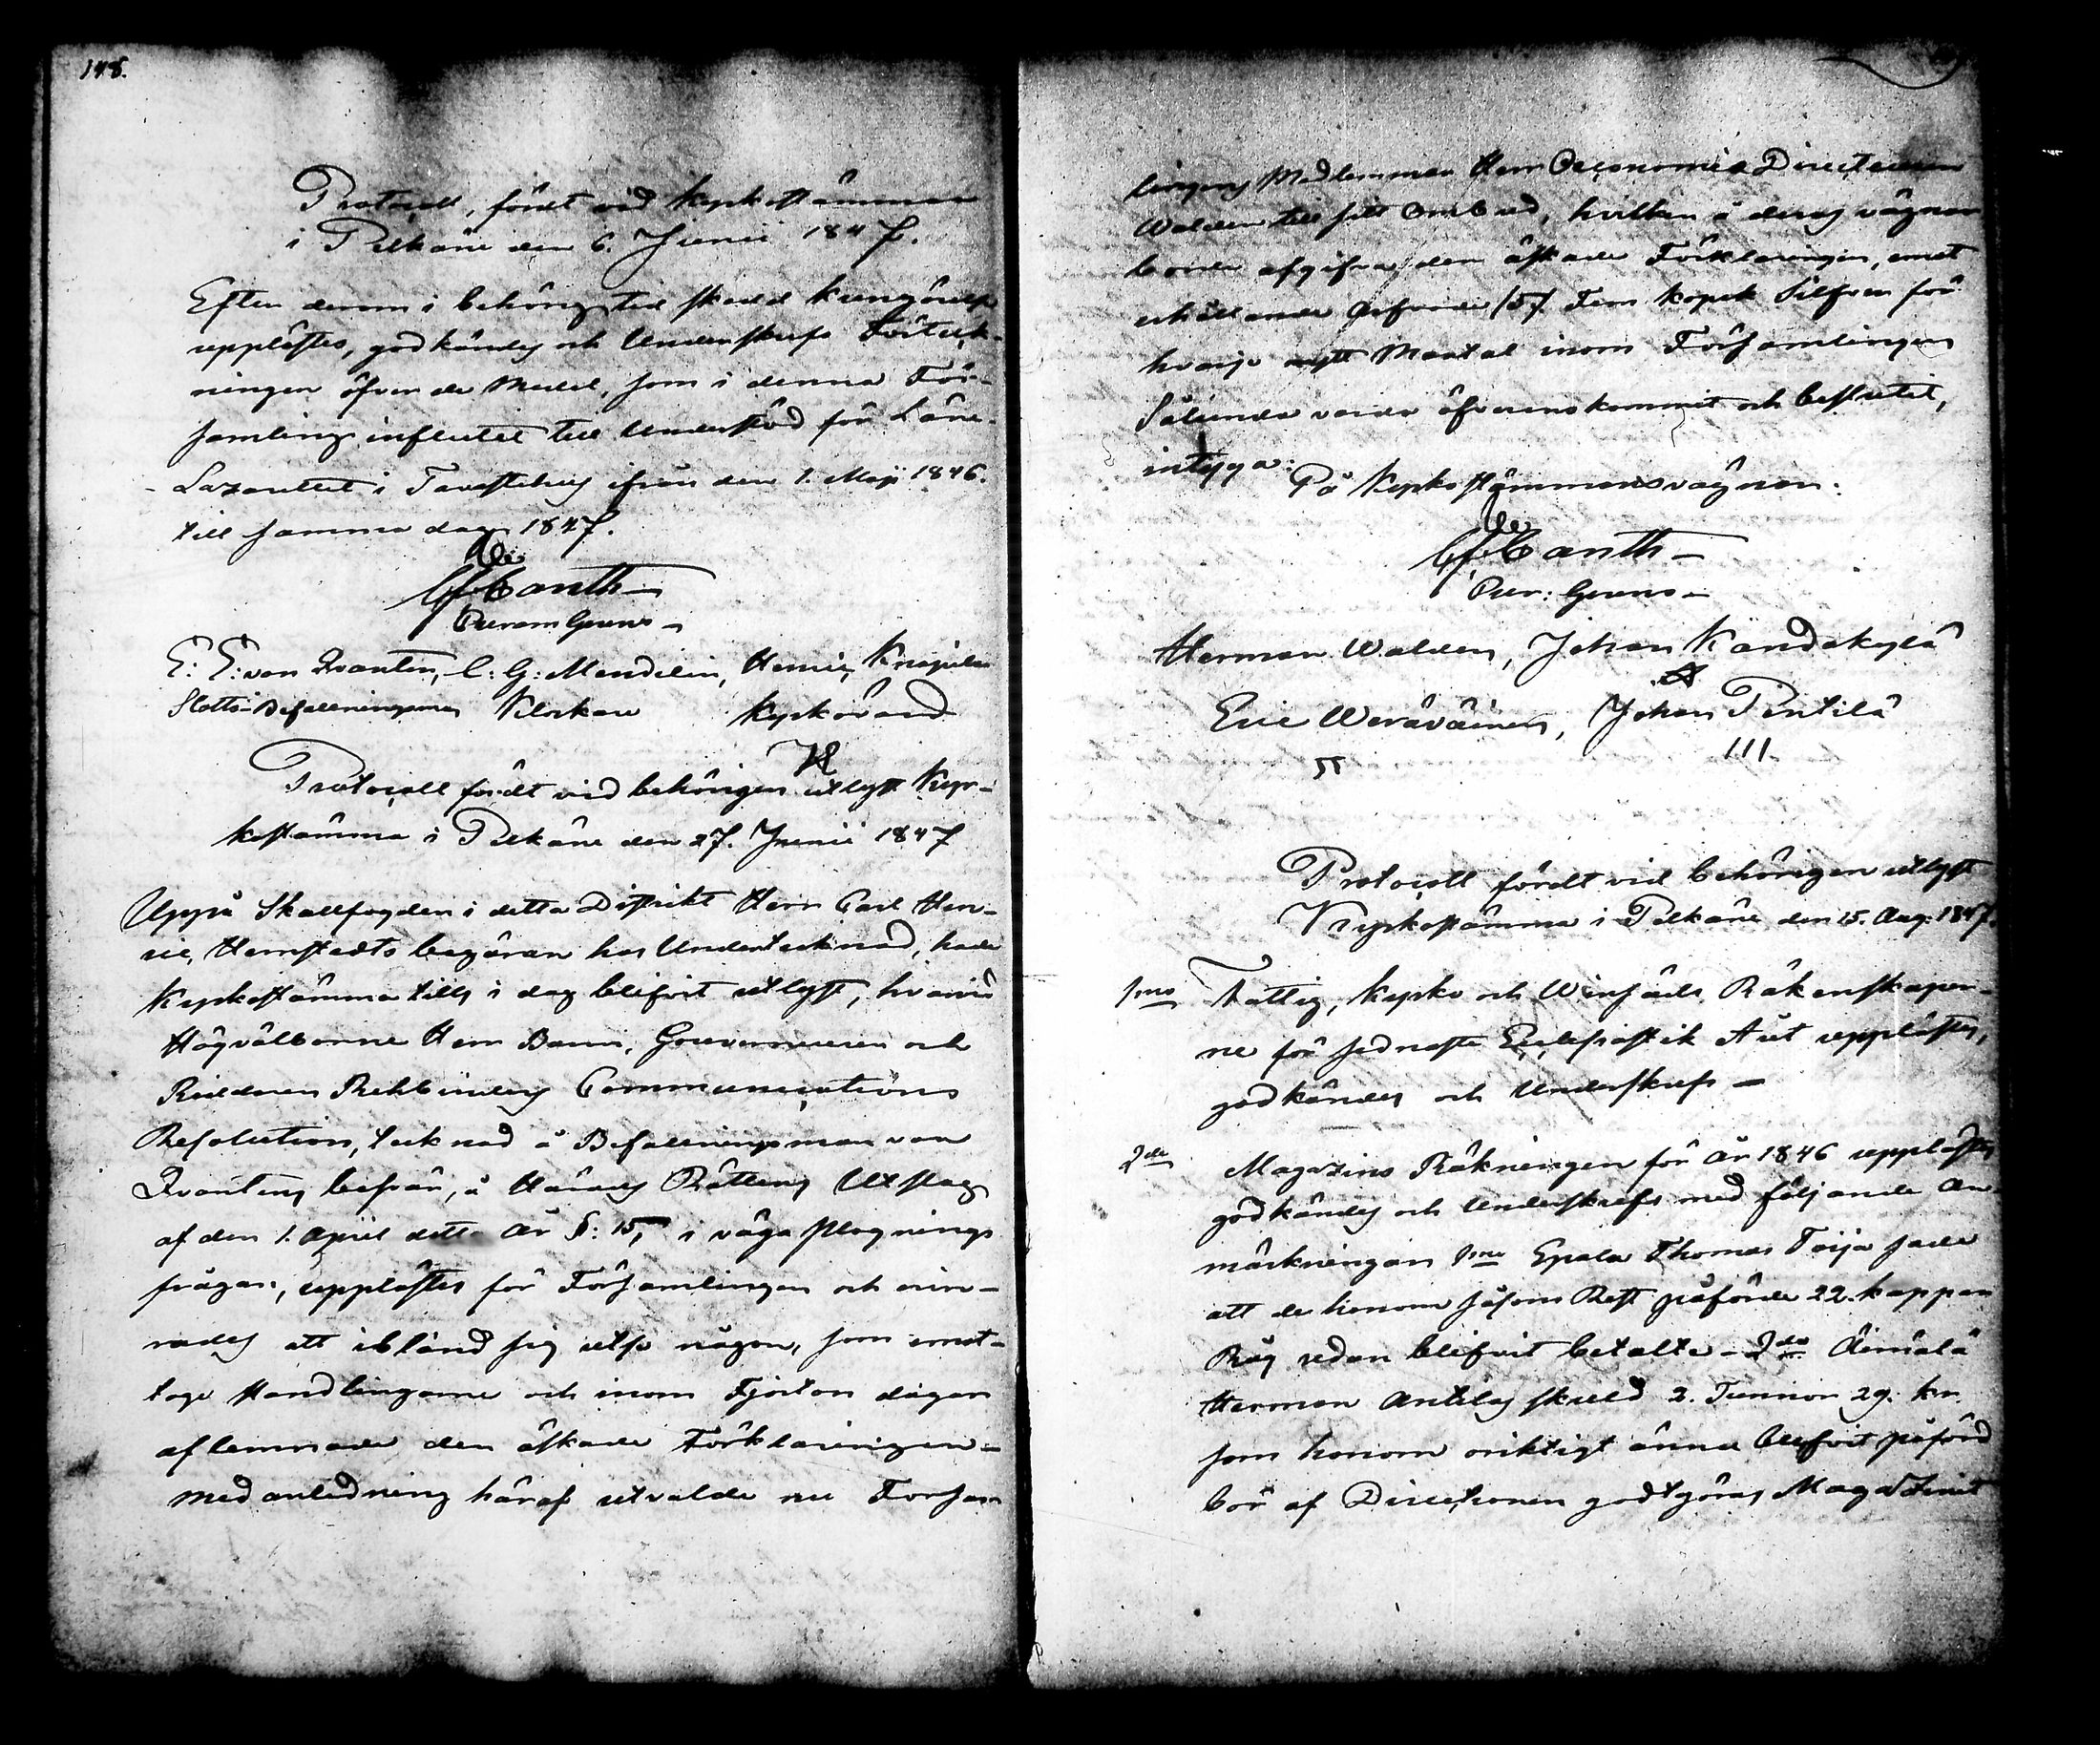 148.
Protocoll, fördt vid Kyrkostämman
i Pelkäne den 6. Junii 1847.
Efter derom i behörig tid skedd kungörelse
upplästes, godkändes och Underskrefs Förteck-
ningen öfver de Medel, som i denna För-
samling influtit till Understöd för Läns-
Lazarettet i Tavastehus ifrån den 1. Maji 1846.
till samma dag 1847.
CfCanth
Curam Gerens
E: E: von Qvanten, C: G: Mendelin, Henric Knapila
Slotts-Befallningsman Klockare Kyrkovärd
Protocoll fördt vid behörigen utlyst Kyr-
kostämma i Pelkäne den 27. Junii 1847
Uppå Skallfogden i detta Distrikt Herr Carl Hen-
ric Hemstedts begäran har Undertecknad, hade
Kyrkostämma tills i dag blifvit utlyst, hvarvid
Högvälborne Herr Baron, Gouverneuren och
Riddaren Rehbinders Communications
Resolution, tecknad å Befallningsman von
Qvantens besvär, å Härads Rättens Utslag
af den 1. April detta År §: 15, i väga plognings
frågan, upplästes för Församlingen och ovin-
rades att ibland sig utse någon, som emot-
toge Handlingarne och inom Fjorton dagar
aflemnade den äskade Förklaringen -
Med anledning häraf utvalde nu Forsam
lingens Medlemmar Herr Oeconomie Directeuren
Walden till sitt Ombud, hvilken å deras vägnar
borde afgifva den äskade Förklaringen, emot
erhållande Arfvode /5/ Fem kopek Silfver för
hvarje nytt Mantal inom Församlingen
Sålunda varda öfverenskommit och beslutit,
intyga:
På Kyrkostämmans vägnar:
CfCanth
Cur: Gerens
Herman Walden, Johan Kändäkylä
Eric Weräväinen, Johan Pentilä
III
Protocoll fördt vid behörigen utlyst
Kyrkostämma i Pelkäne den 15. Aug: 1847.
1mo Fattig, Kyrko och Winfärds Räkenskaper-
ne för sednaste Ecclesiastik Året upplästes,
godkändes och Underskrefs —
2do Magazins Räkningen för år 1846 upplästes
godkändes och Underskrefs med följande An-
märkningar 1mo Epala Thomas Toija sade
att de honom såsom Rest påförde 22. kappar
Råg redan blifvit betalte - 2do Äimälä
Herman Antilas skuld 2. Tunnor 29. kr.
som honom oriktigt ännu blifvit påförd
bör af Directionen godtgöras Magazinet